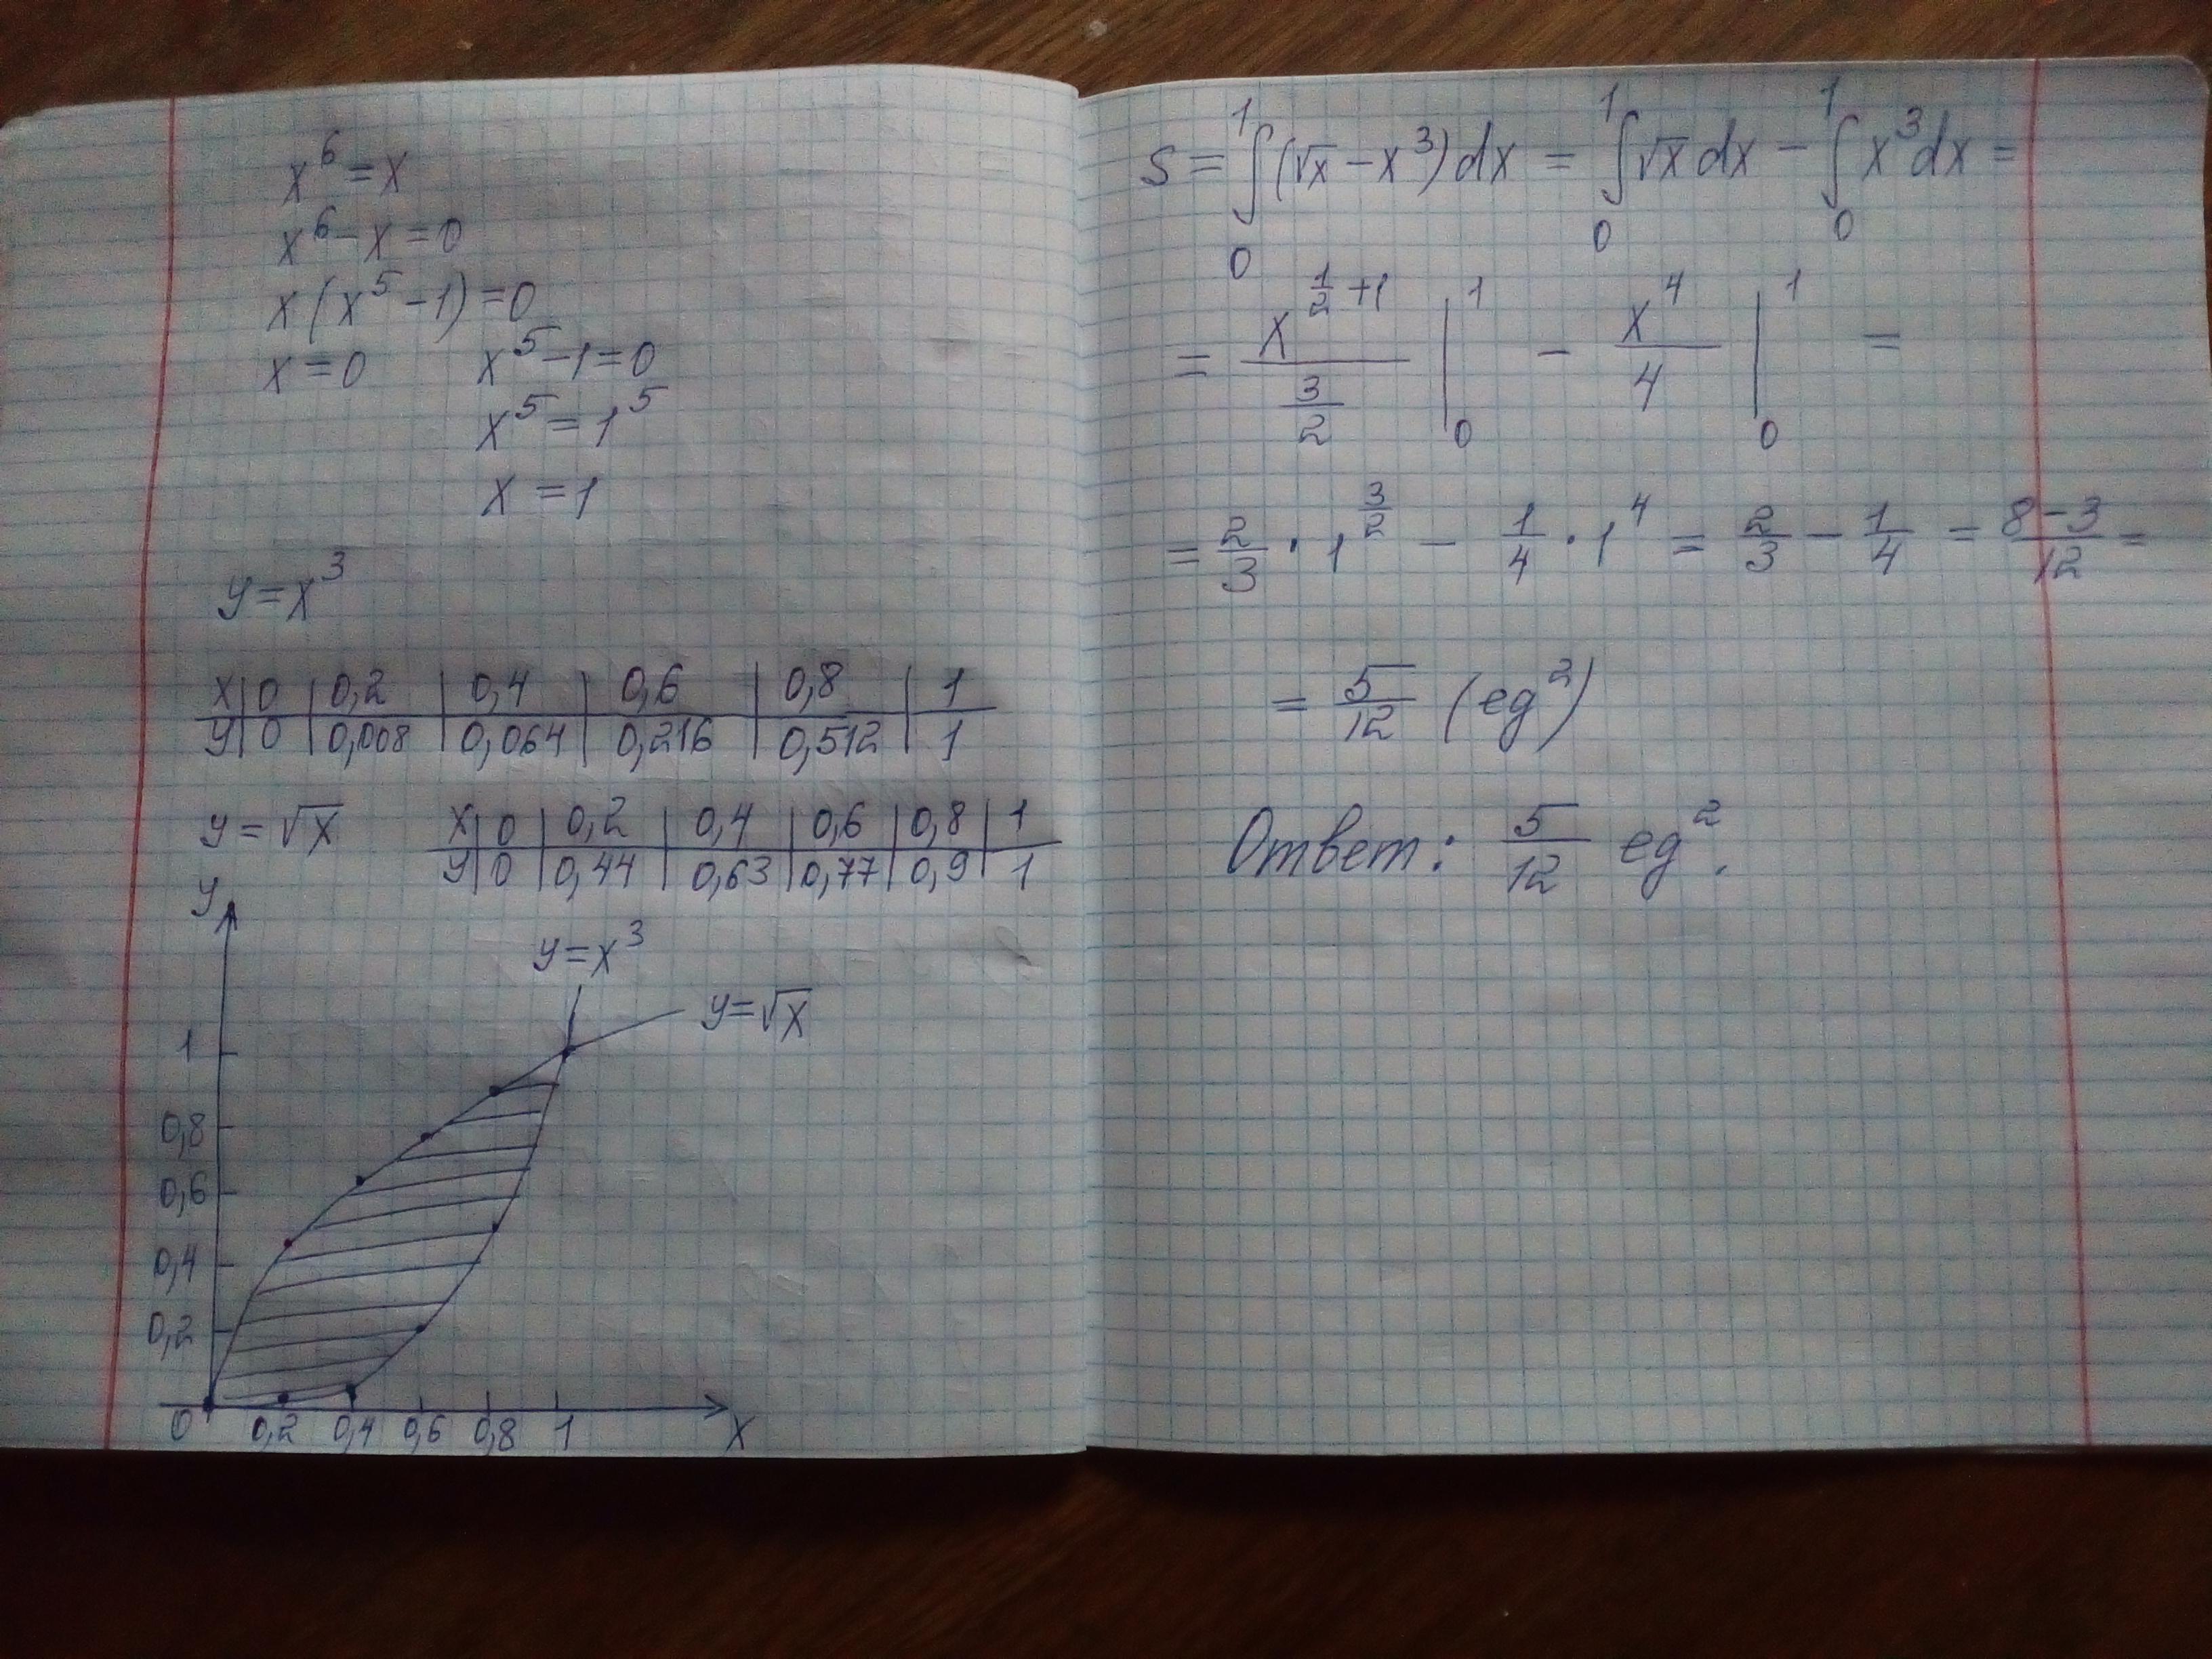 x⁶ = x
x⁶ − x = 0
x(x⁵ − 1) = 0
x = 0 x⁵ − 1 = 0
x⁵ = 1⁵
x = 1
y = x³
x | 0 | 0,2 | 0,4 | 0,6 | 0,8 | 1
y | 0 | 0,008 | 0,064 | 0,216 | 0,512 | 1
y = √x
x | 0 | 0,2 | 0,4 | 0,6 | 0,8 | 1
y | 0 | 0,44 | 0,63 | 0,77 | 0,9 | 1
y
y = x³
y = √x
1
0,8
0,6
0,4
0,2
0 0,2 0,4 0,6 0,8 1 x
S = ∫₀¹ (√x − x³) dx = ∫₀¹ √x dx − ∫₀¹ x³ dx =
= x^(1/2 + 1) / (3/2) |₀¹ − x⁴/4 |₀¹ =
= 2/3 · 1^(3/2) − 1/4 · 1⁴ = 2/3 − 1/4 = (8 − 3)/12 =
= 5/12 (ед²)
Ответ: 5/12 ед².